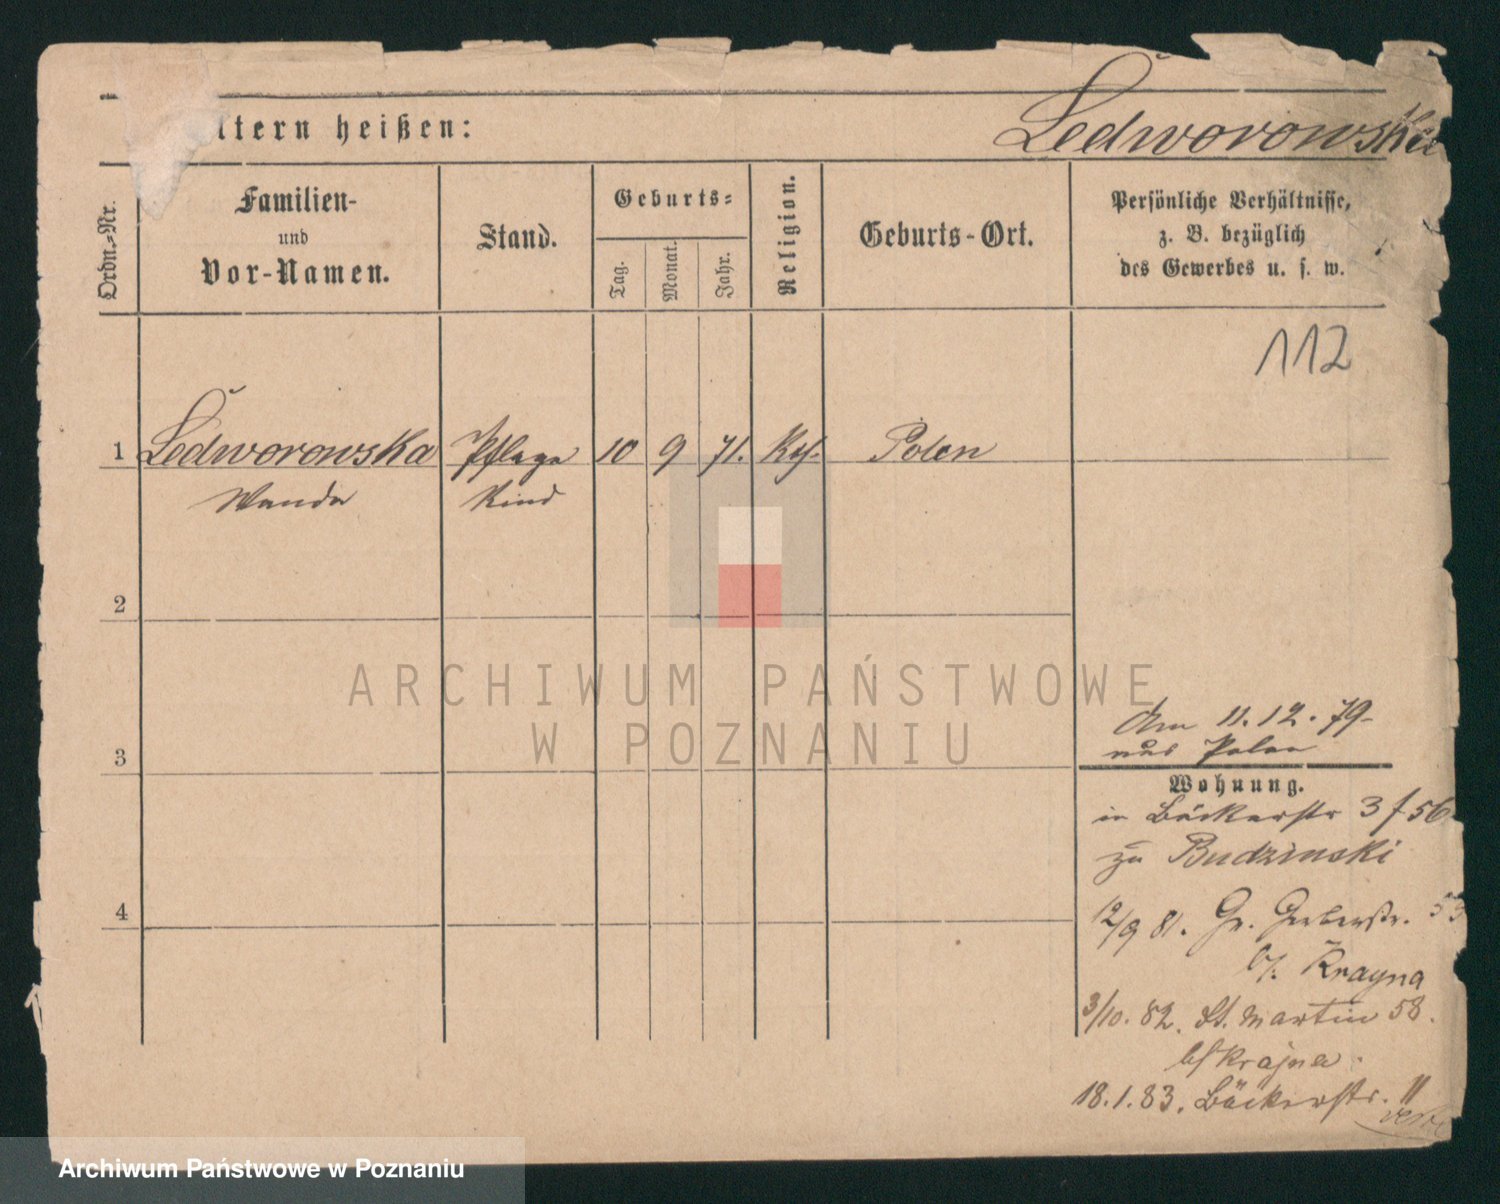 ltern heißen: Ledworowska
Ordn.-Nr.
Familien-
und
Vor-Namen.
Stand.
Geburts-
Tag.
Monat.
Jahr.
Religion.
Geburts-Ort.
Persönliche Verhältnisse,
z. B. bezüglich
des Gewerbes u. s. w.
112
1 Ledworowska Pflege 10 9 71. Kth. Polen
Wanda Kind
2
3
4
Am 11.12.79
aus Polen
Wohnung.
in Bäckerstr 3 f 56
zu Budzinski
12/9 81. Gr. Gerberstr. 53
b/. Krayna
3/10. 82. St. Martin 58.
bf Krajna.
18.1.83. Bäckerstr. 11
ARCHIWUM PAŃSTWOWE
W POZNANIU
Archiwum Państwowe w Poznaniu